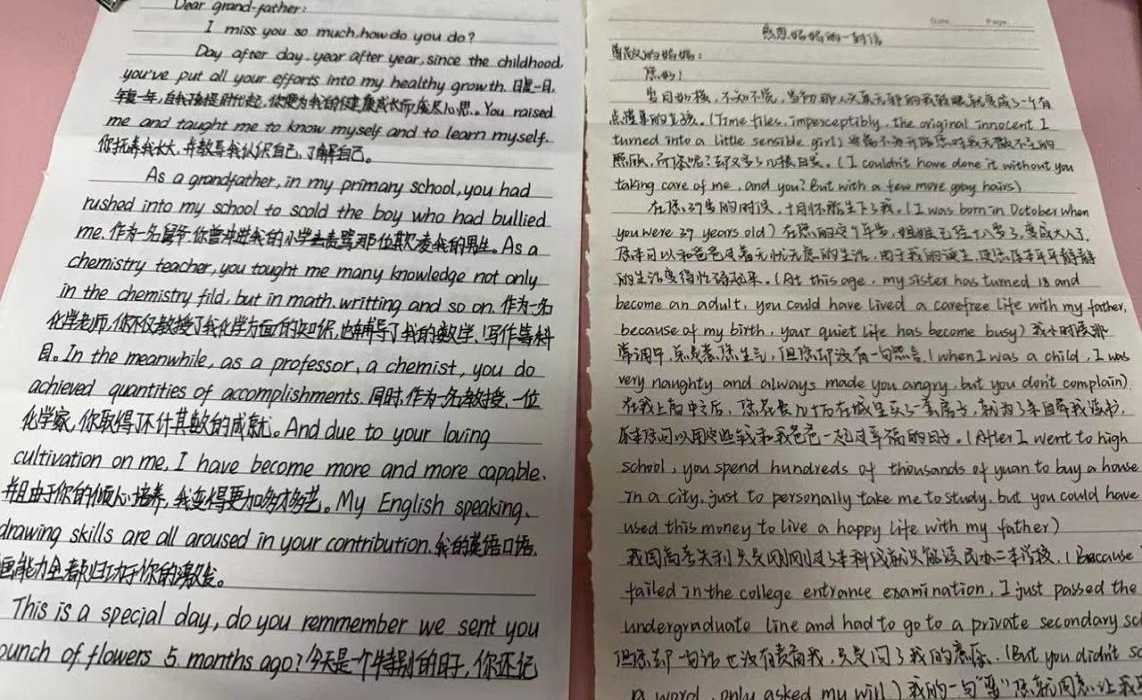 Dear grand-father:
I miss you so much, how do you do?
Day after day, year after year, since the childhood,
you've put all your efforts into my healthy growth. 日复一日,
年复一年,自我孩提时代起,你便为我的健康成长而废尽心思。You raised
me and taught me to know myself and to learn myself.
你抚养我长大,并教导我认识自己,了解自己。
As a grandfather, in my primary school, you had
rushed into my school to scold the boy who had bullied
me. 作为一名爷爷,你曾冲进我的小学去责骂那位欺凌我的男生。As a
chemistry teacher, you taught me many knowledge not only
in the chemistry fild, but in math, writting and so on. 作为一名
化学老师,你不仅教授了我化学方面的知识,也辅导了我的数学、写作等科
目。In the meanwhile, as a professor, a chemist, you do
achieved quantities of accomplishments. 同时,作为一名教授、一位
化学家,你取得了不计其数的成就。And due to your loving
cultivation on me, I have become more and more capable.
并且由于你的倾心培养,我变得更加多才多艺。My English speaking,
drawing skills are all aroused in your contribution. 我的英语口语,
画能力全都归功于你的
This is a special day, do you remmember we sent you
ounch of flowers 5 months ago? 今天是个特别的日子,你还记
Date. Page.
感恩妈妈的一封信
尊敬的妈妈:
您好!
岁月如梭,不知不觉,当初那人天真无邪的我转眼就变成了一个有
点懂事的女孩。(Time flies, imperceptibly, the original innocent I
turned into a little sensible girl) 我离不开您对我无微不至的
照顾,而您呢?却又多了几根白发。(I couldn't have done it without you
taking care of me, and you? But with a few more gray hairs)
在您39岁的时候,十月怀胎生下了我。(I was born in October when
you were 39 years old) 在您的这个年岁,姐姐已经十八岁了,变成大人了,
您本可以和爸爸过着无忧无虑的生活,由于我的诞生,使您原本平平静静
的生活变得忙碌起来。(At this age, my sister has turned 18 and
become an adult, you could have lived a carefree life with my father,
because of my birth, your quiet life has become busy) 我小时候非
常调皮,总是惹您生气,但您却没有一句怨言。(when I was a child, I was
very naughty and always made you angry, but you don't complain).
在我上高中之后,您花费几十万在城里买了一套房子,就为了亲自陪我读书,
原本您可以用这些钱和我爸爸一起过幸福的日子。(After I went to high
school, you spend hundreds of thousands of yuan to buy a house
in a city, just to personally take me to study, but you could have
used this money to live a happy life with my father)
我因高考失利只是刚刚过了本科线就只能读民办二本学校。(Because I
failed in the college entrance examination, I just passed the
undergraduate line and had to go to a private secondary sc
但您却一句话也没有责备我,只是问了我的意愿。(But you didn't s
a word, only asked my will) 我的一句